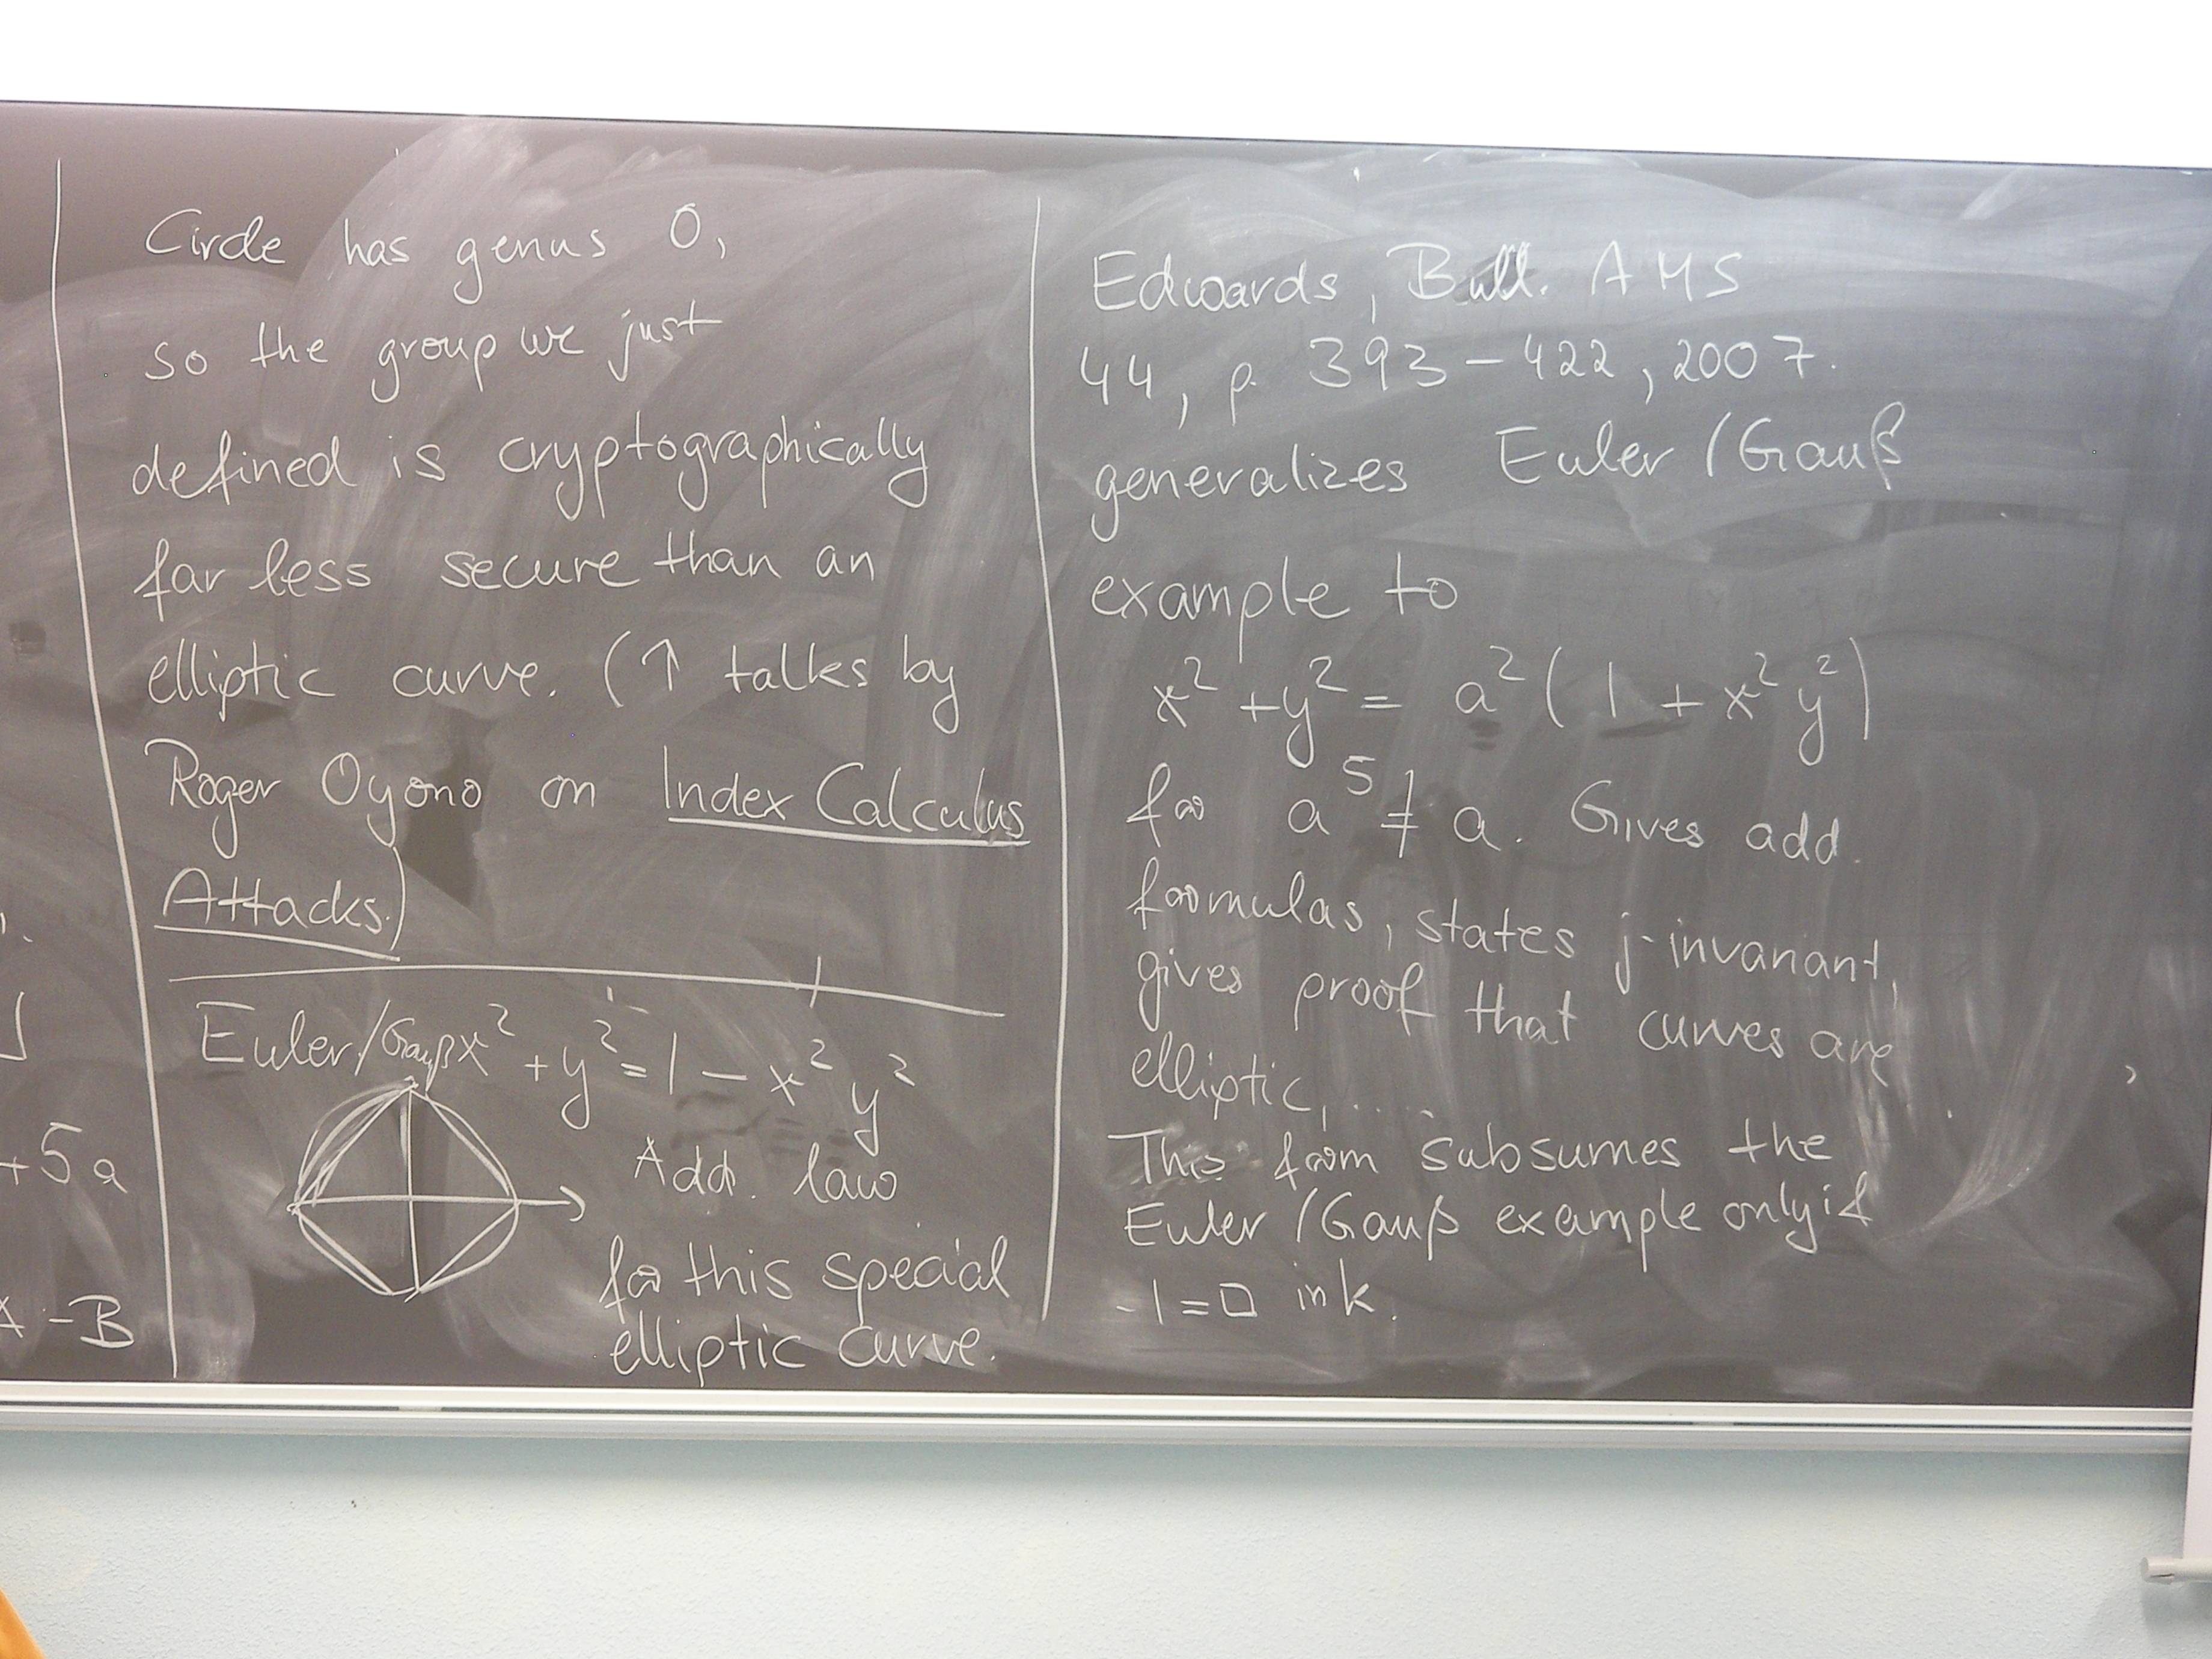 Circle has genus 0,
so the group we just
defined is cryptographically
far less secure than an
elliptic curve. (↑ talks by
Roger Oyono on Index Calculus
Attacks.)
Euler/Gauß x² + y² = 1 - x² y²
Add. law
for this special
elliptic curve.
+5a
-B
Edwards, Bull. AMS
44, p. 393-422, 2007.
generalizes Euler/Gauß
example to
x² + y² = a² (1 + x² y²)
for a⁵ ≠ a. Gives add.
formulas, states j-invariant,
gives proof that curves are
elliptic, ....
This form subsumes the
Euler/Gauß example only if
-1=□ in k.